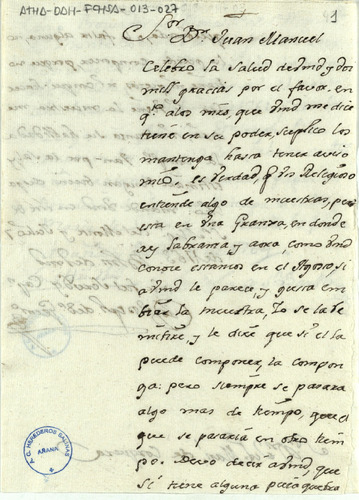 ATHA-DAH-FHISA-013-027
1
Sor Dn Juan Manuel
Celebro la Salud de Vmd y dos
mill gracias por el favor, en
qto a los mrs, que Vmd me dice
tiene en su poder, suplico los
mantenga hasta tener aviso
mio: es verdad q un Religioso
entiende algo de muestras, pero
esta en una Granxa, en donde
ay labranza y aora, como Vmd
conoce estamos en el Agosto, si
a Vmd le parece y gusta em
biar la muestra, Yo se la re
mitire, y le dire que si el la
puede componer, la compon
ga: pero siempre se pasara
algo mas de tiempo, que el
que se pasaria en otro tiem
po. Devo decir a Vmd, que
si tiene alguna para
P.G. HEREDEROS SALINAS
ARAMA